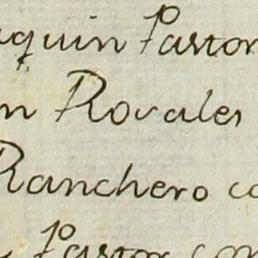 aquin Pastor
n Rovales
Ranchero co
Pastor con